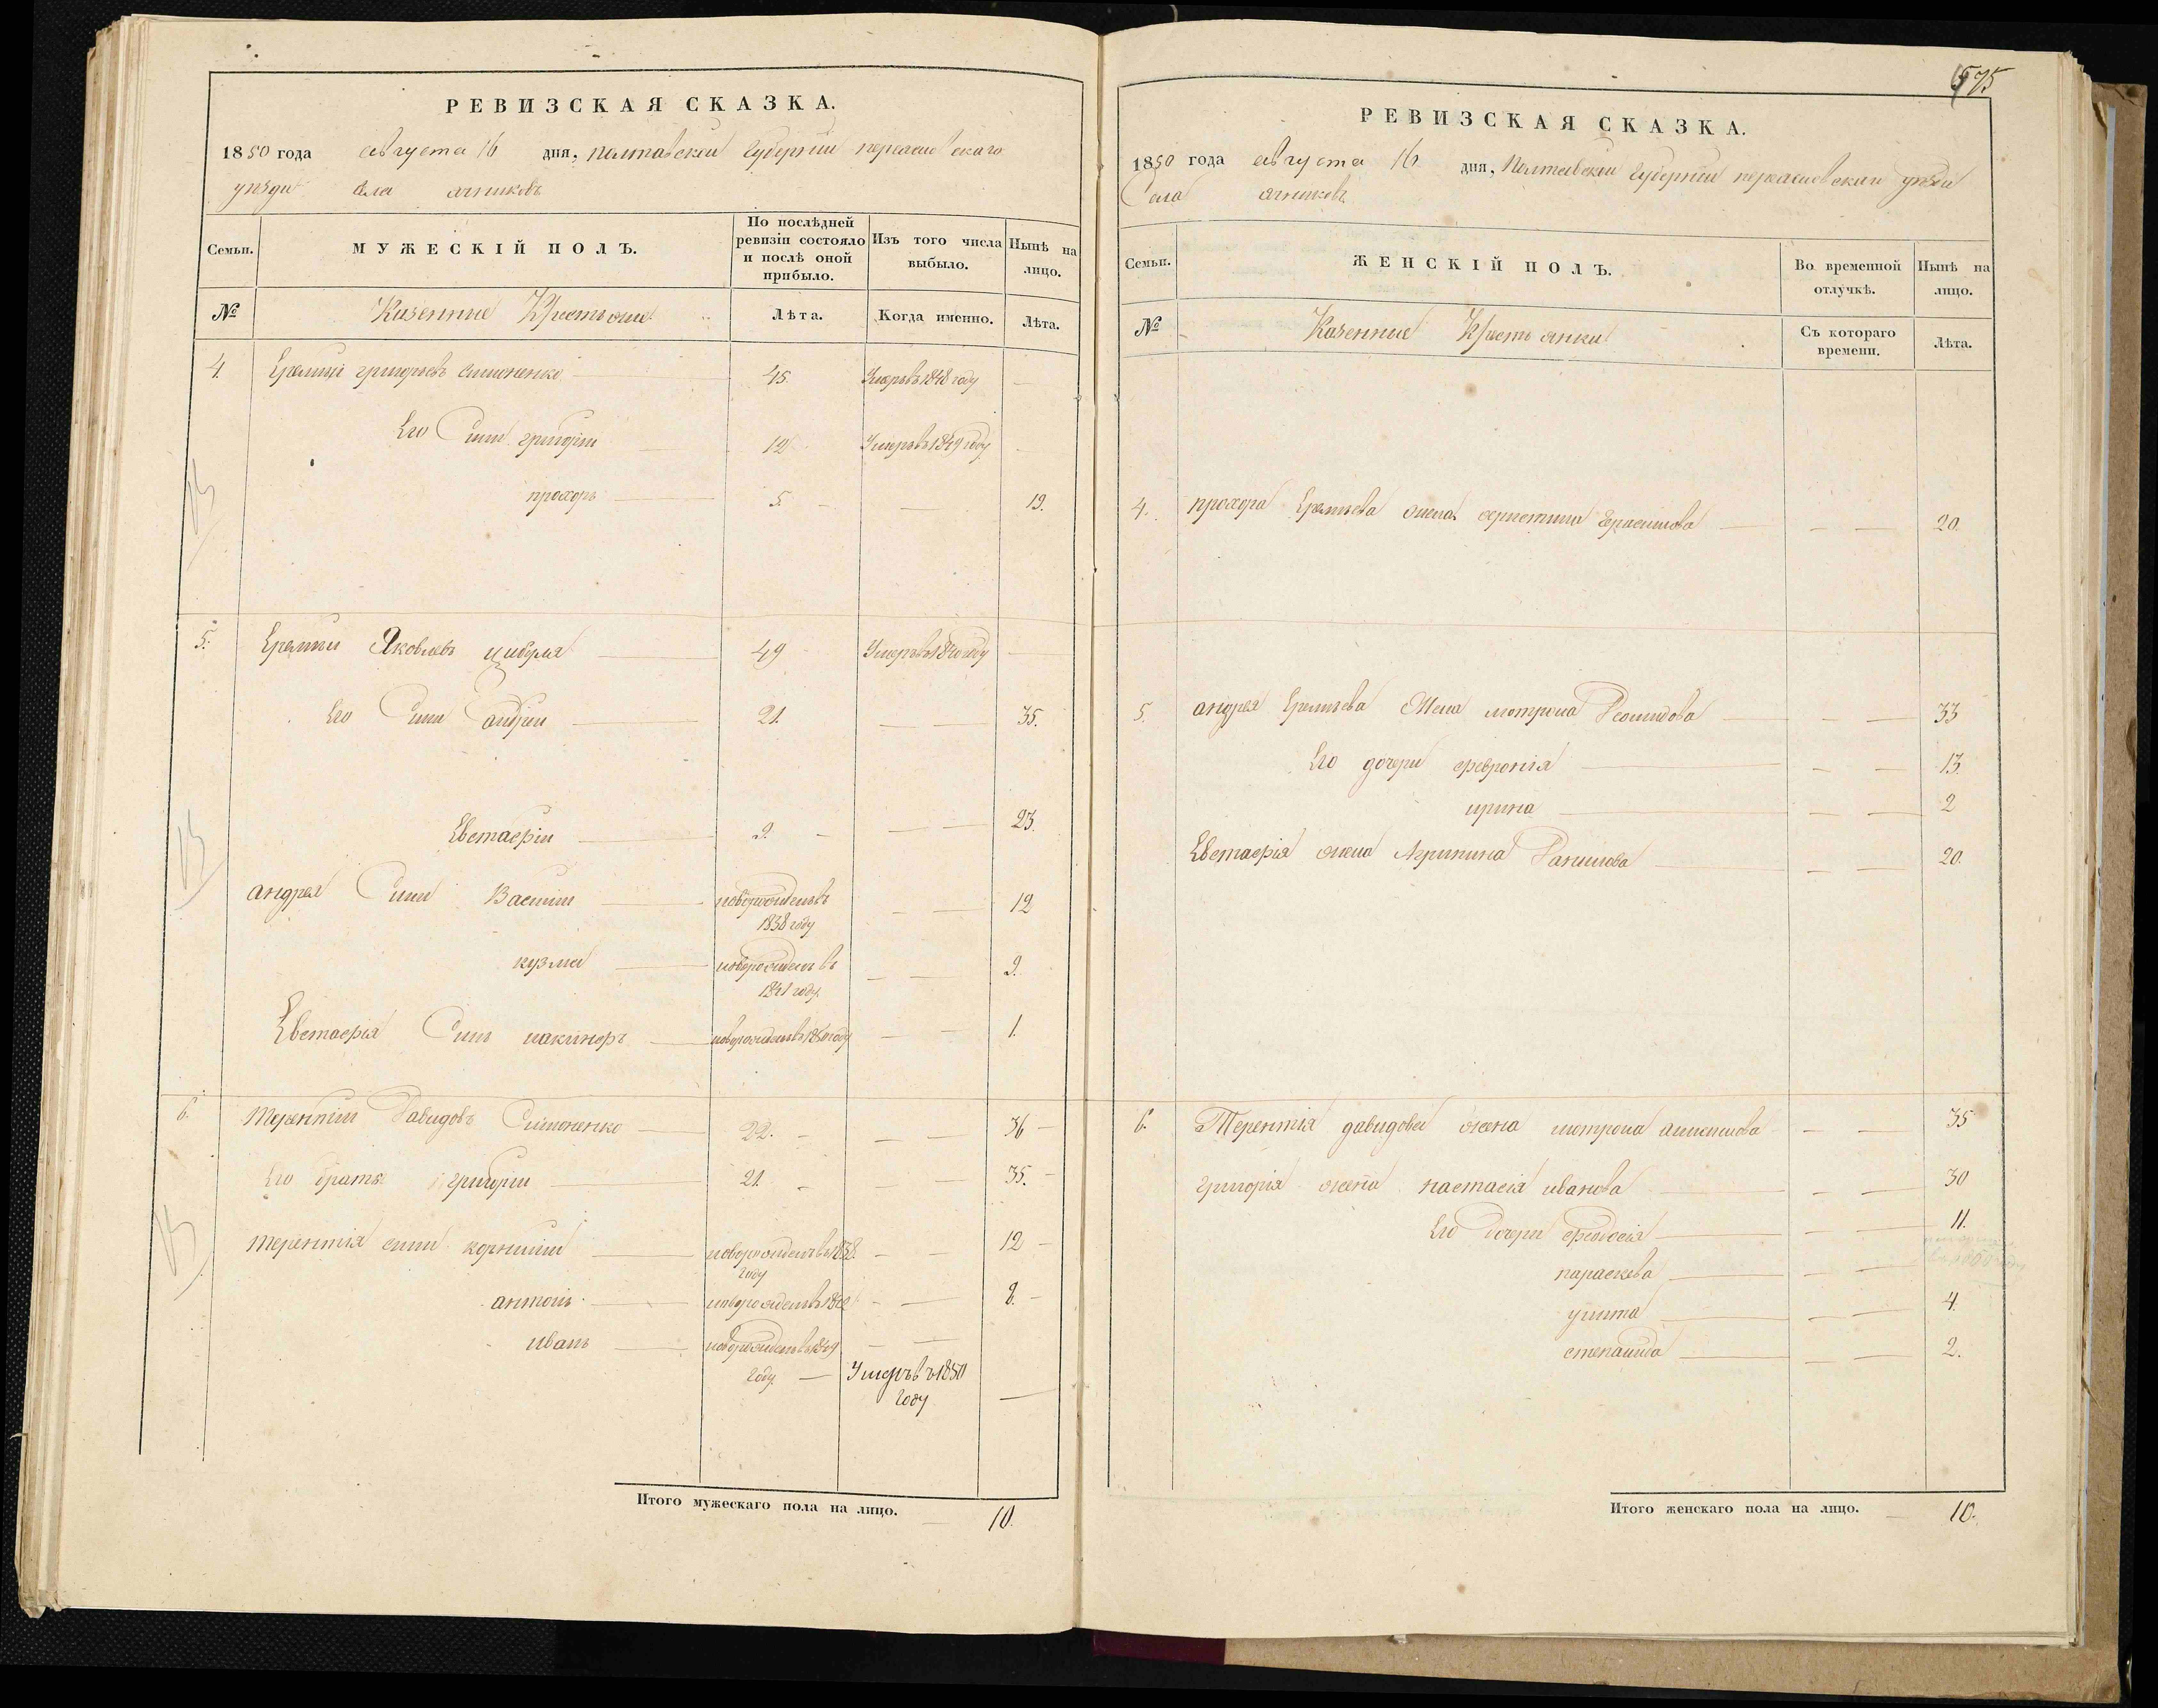 РЕВИЗСКАЯ СКАЗКА.
1850 года августа 16 дня, полтавской губернии переяславскаго
уезда села ячников
Семьи.
МУЖЕСКІЙ ПОЛЪ.
По послѣдней ревизіи состояло и послѣ оной прибыло.
Изъ того числа выбыло.
Нынѣ на лицо.
№
Казенные Крестьяне
Лѣта.
Когда именно.
Лѣта.
4. григорьевъ симоненко 45. Умеръ въ 1848 году
Его Сын григорій 12 Умеръ въ 1849 году
прохоръ 5. 19.
5. Яковлевъ цибуля 49 Умеръ въ году
Его Сын андреи 21. 35.
Евстафіи 9. 23.
андрея Сын Василии новорожденъ въ 12
1838 году
кузма новорожденъ въ 9.
1841 году.
Евстафія Сынъ новорожденъ въ году 1.
6. Терентіи Давидовъ Симоненко 22. 36
Его братъ григоріи 21. 35.
терентія сын корнилии новорожденъ въ 1838. 12
году
антонъ новорожденъ въ 8.
иванъ новорожденъ въ 1849
году. Умеръ въ 1850
году
Итого мужескаго пола на лицо. 10.
575
РЕВИЗСКАЯ СКАЗКА.
1850 года августа 16 дня, Полтавской губернии переяславскаи уезда
Села ячников
Семьи.
ЖЕНСКІЙ ПОЛЪ.
Во временной отлучкѣ.
Нынѣ на лицо.
№
Казенные Крестьянки
Съ котораго времени.
Лѣта.
4. прохора жена Герасимова 20.
5. андрея Жена мотрона 33
Его дочери февронія 13.
ирина 2
Евстафія жена Агрипина 20.
6. Терентія давидова жена мотрона 35
григорія жена настасія иванова 30
Его дочери феодосія 11.
параскева
улита 4.
степанида 2.
Итого женскаго пола на лицо. 10.